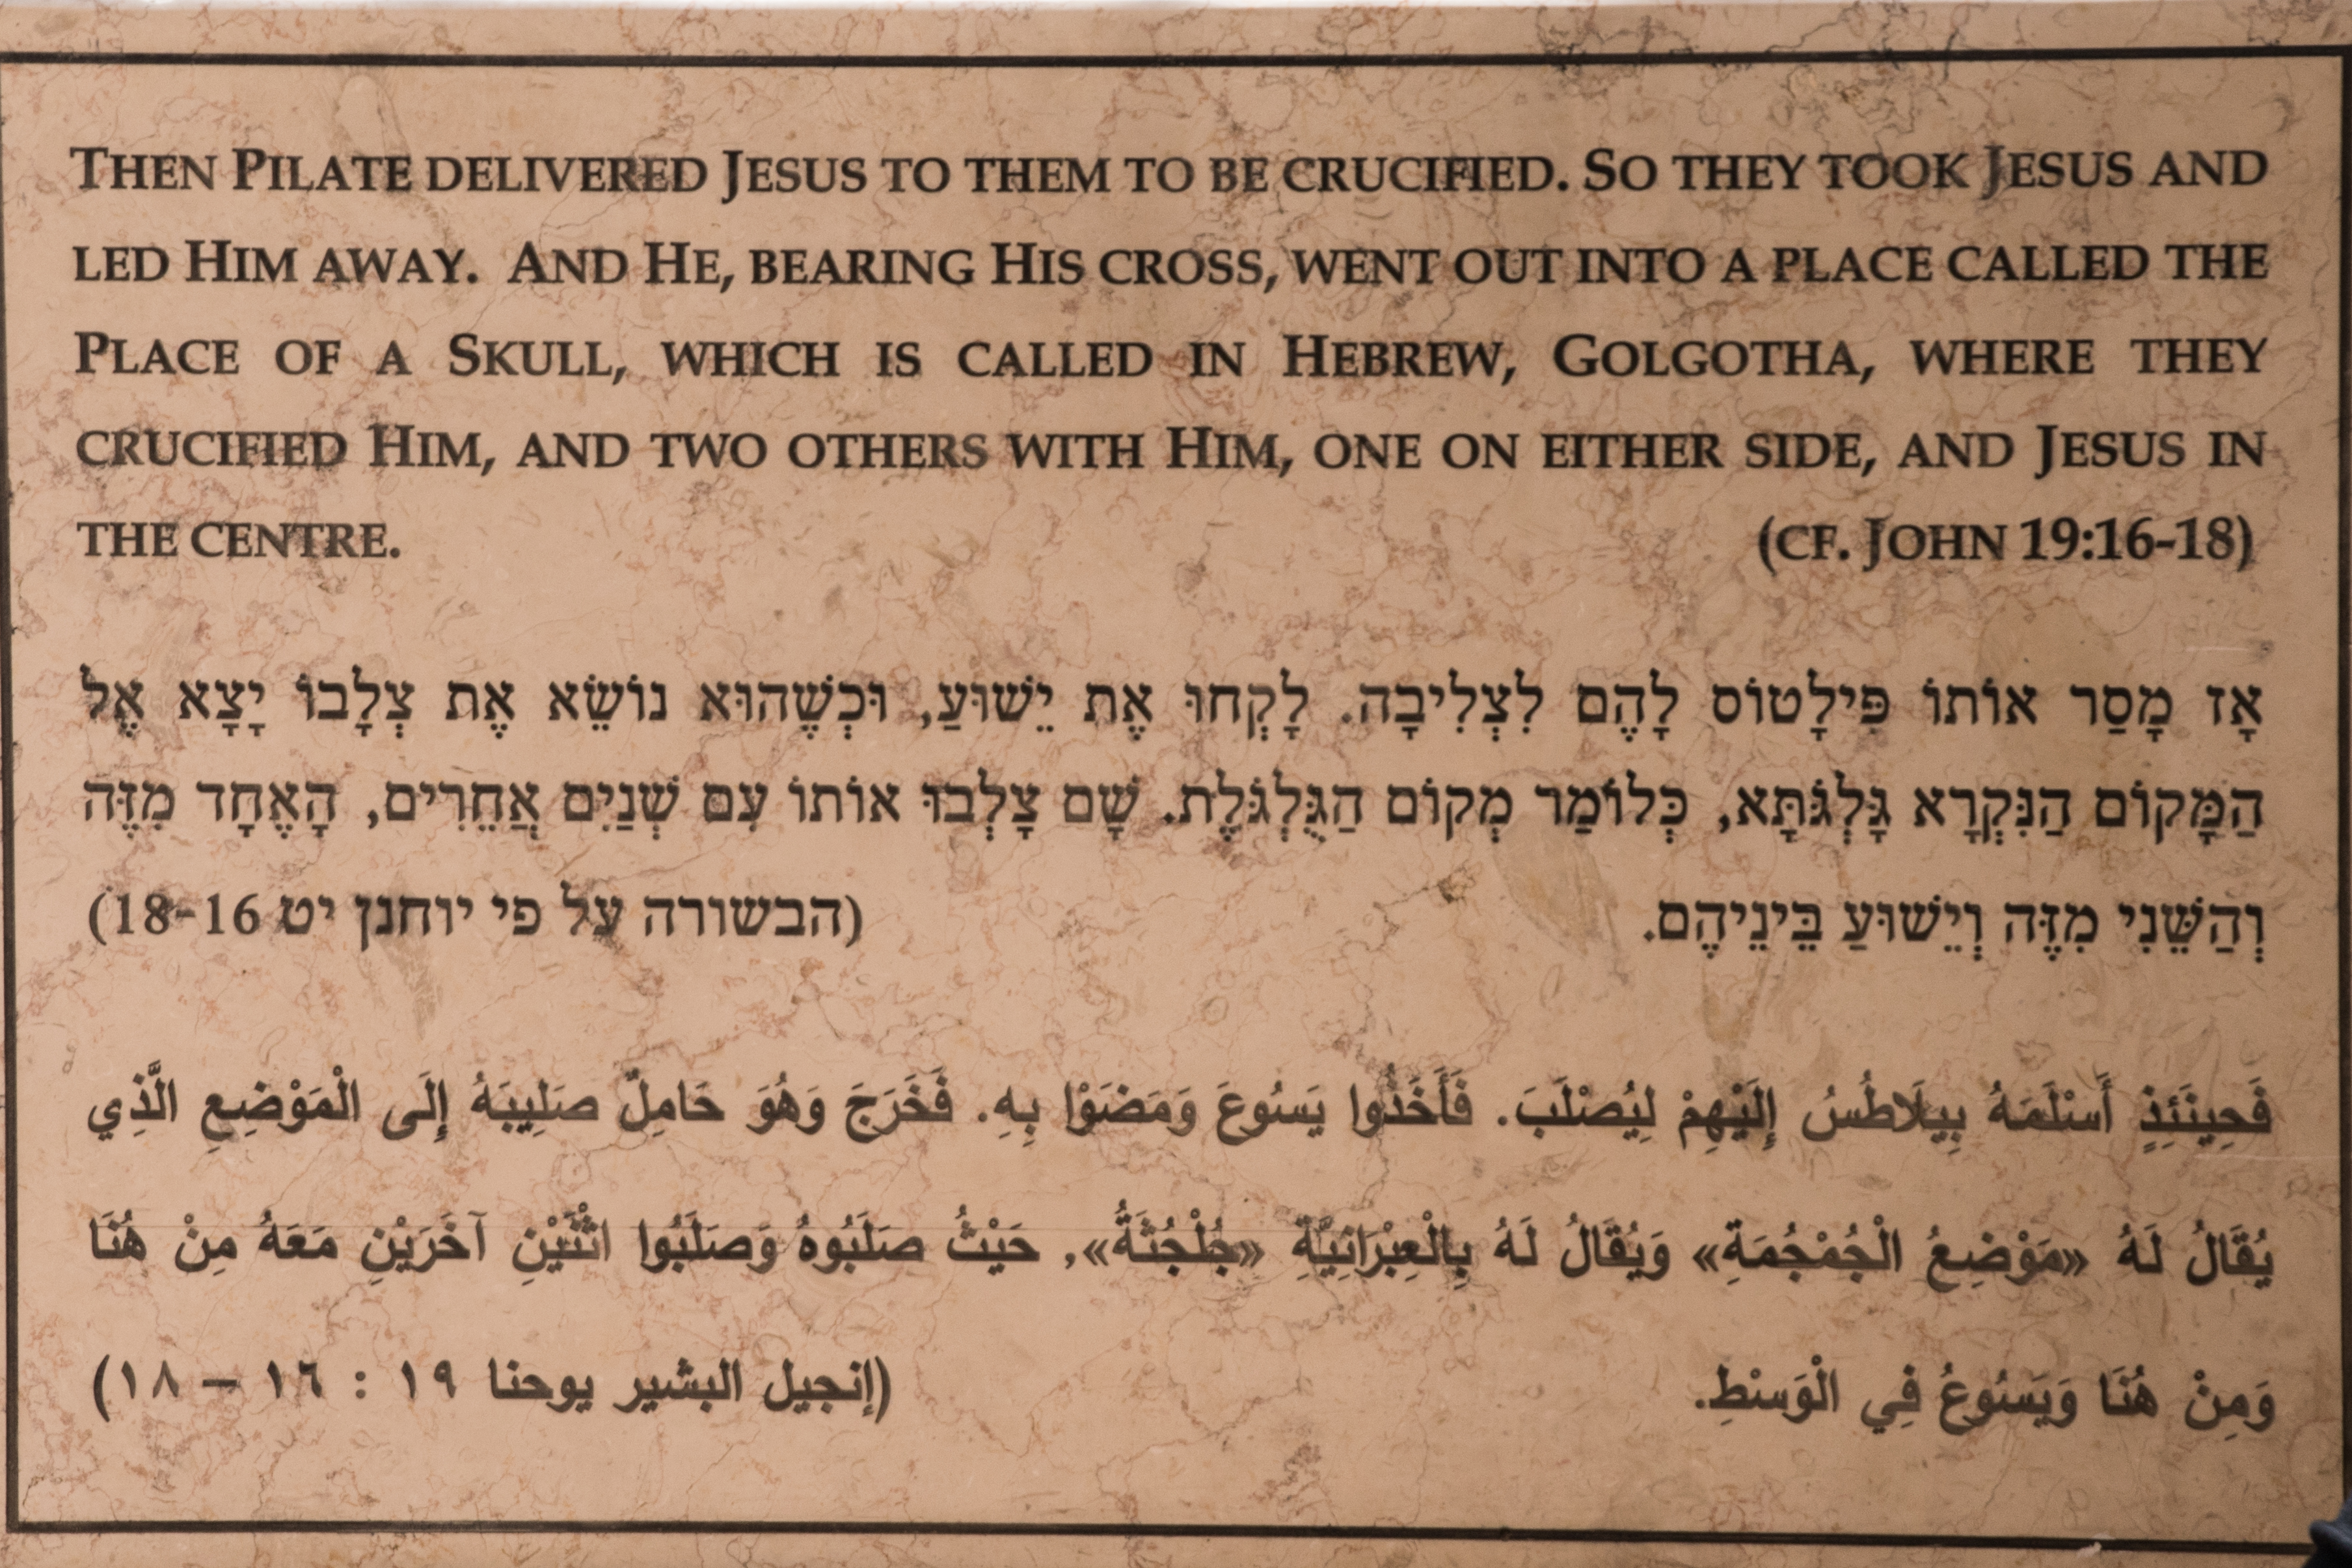 THEN PILATE DELIVERED JESUS TO THEM TO BE CRUCIFIED. SO THEY TOOK JESUS AND
LED HIM AWAY. AND HE, BEARING HIS CROSS, WENT OUT INTO A PLACE CALLED THE
PLACE OF A SKULL, WHICH IS CALLED IN HEBREW, GOLGOTHA, WHERE THEY
CRUCIFIED HIM, AND TWO OTHERS WITH HIM, ONE ON EITHER SIDE, AND JESUS IN
THE CENTRE. (CF. JOHN 19:16-18)
אָז מָסַר אוֹתוֹ פִּילָטוֹס לָהֶם לִצְלִיבָה. לָקְחוּ אֶת יֵשׁוּעַ, וּכְשֶׁהוּא נוֹשֵׂא אֶת צְלָבוֹ יָצָא אֶל
הַמָּקוֹם הַנִּקְרָא גָּלְגֹּתָּא, כְּלוֹמַר מְקוֹם הַגֻּלְגֹּלֶת. שָׁם צָלְבוּ אוֹתוֹ עִם שְׁנַיִם אֲחֵרִים, הָאֶחָד מִזֶּה
וְהַשֵּׁנִי מִזֶּה וְיֵשׁוּעַ בֵּינֵיהֶם. (הבשורה על פי יוחנן יט 16-18)
فَحِينَئِذٍ أَسْلَمَهُ بِيلَاطُسُ إِلَيْهِمْ لِيُصْلَبَ. فَأَخَذُوا يَسُوعَ وَمَضَوْا بِهِ. فَخَرَجَ وَهُوَ حَامِلٌ صَلِيبَهُ إِلَى الْمَوْضِعِ الَّذِي
يُقَالُ لَهُ «مَوْضِعُ الْجُمْجُمَةِ» وَيُقَالُ لَهُ بِالْعِبْرَانِيَّةِ «جُلْجُثَةُ», حَيْثُ صَلَبُوهُ وَصَلَبُوا اثْنَيْنِ آخَرَيْنِ مَعَهُ مِنْ هُنَا
وَمِنْ هُنَا وَيَسُوعُ فِي الْوَسْطِ. (إنجيل البشير يوحنا ١٩ : ١٦ – ١٨)